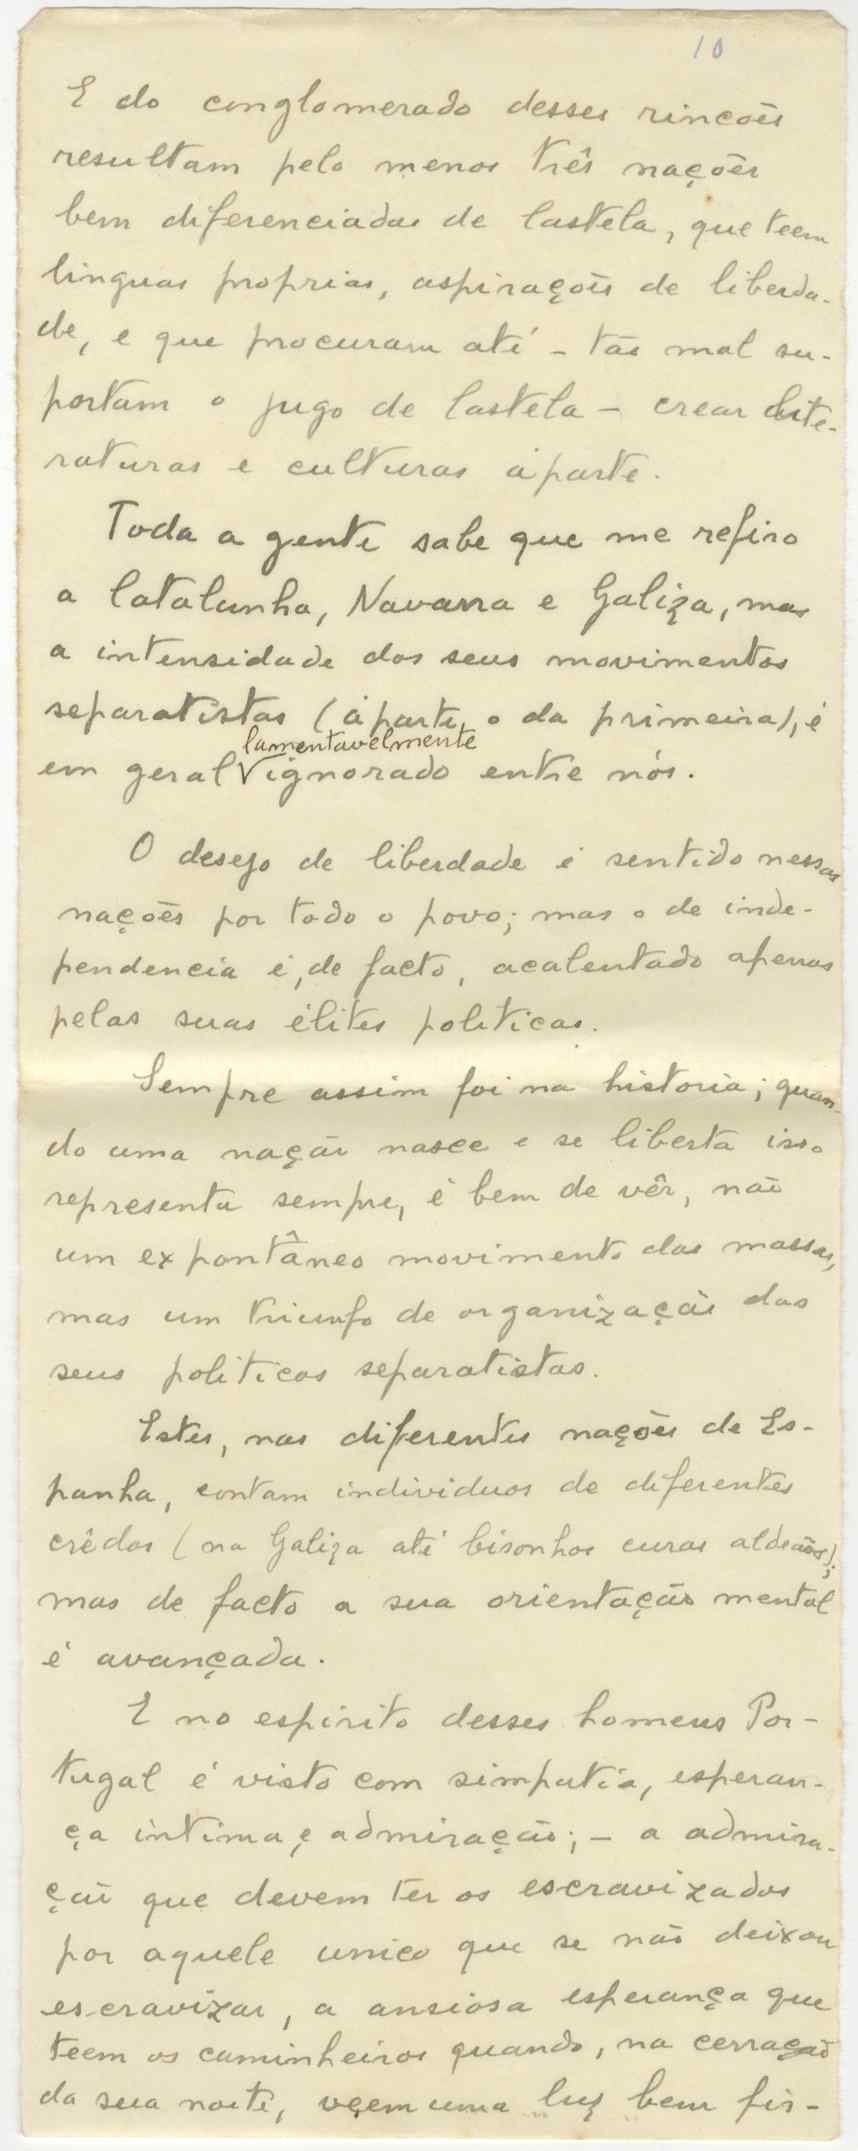 10
E do conglomerado desses rincões
resultam pelo menos três nações
bem diferenciadas de Castela, que teem
linguas proprias, aspirações de liberda-
de, e que procuram até - tão mal su-
portam o jugo de Castela - crear lite-
raturas e culturas àparte.
Toda a gente sabe que me refiro
a Catalunha, Navarra e Galiza, mas
a intensidade dos seus movimentos
separatistas (àparte o da primeira), é
lamentavelmente
em geral V ignorado entre nós.
O desejo de liberdade é sentido nessas
nações por todo o povo; mas o de inde-
pendencia é, de facto, acalentado apenas
pelas suas élites politicas.
Sempre assim foi na historia; quan-
do uma nação nasce e se liberta isso
representa sempre, é bem de vêr, não
um expontâneo movimento das massas,
mas um triunfo de organização dos
seus politicos separatistas.
Estes, nas diferentes nações de Es-
panha, contam individuos de diferentes
crêdos (na Galiza até bisonhos curas aldeãos);
mas de facto a sua orientação mental
é avançada.
E no espirito desses homens Por-
tugal é visto com simpatia, esperan-
ça intima, e admiração; - a admira-
ção que devem ter os escravizados
por aquele unico que se não deixou
escravizar, a ansiosa esperança que
teem os caminheiros quando, na cerração
da sua noite, vêem uma luz bem fir-